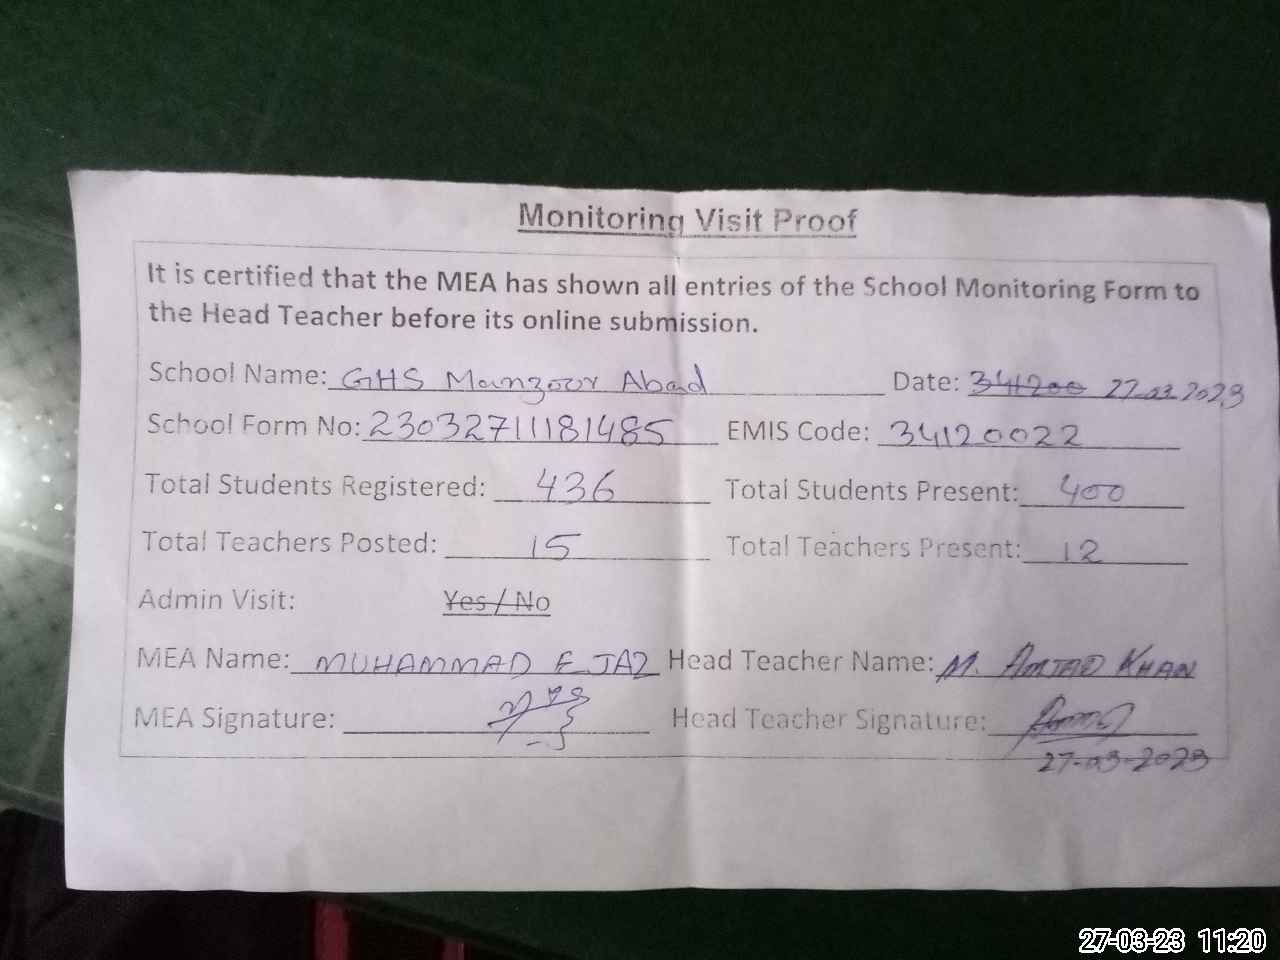 Monitoring Visit Proof
It is certified that the MEA has shown all entries of the School Monitoring Form to
the Head Teacher before its online submission.
School Name: GHS Manzoor Abad Date: 341200 27-03-2023
School Form No: 23032711181485 EMIS Code: 34120022
Total Students Registered: 436 Total Students Present: 400
Total Teachers Posted: 15 Total Teachers Present: 12
Admin Visit: Yes / No
MEA Name: MUHAMMAD EJAZ Head Teacher Name: M. AMJAD KHAN
MEA Signature: Head Teacher Signature:
27-03-2023
27-03-23 11:20